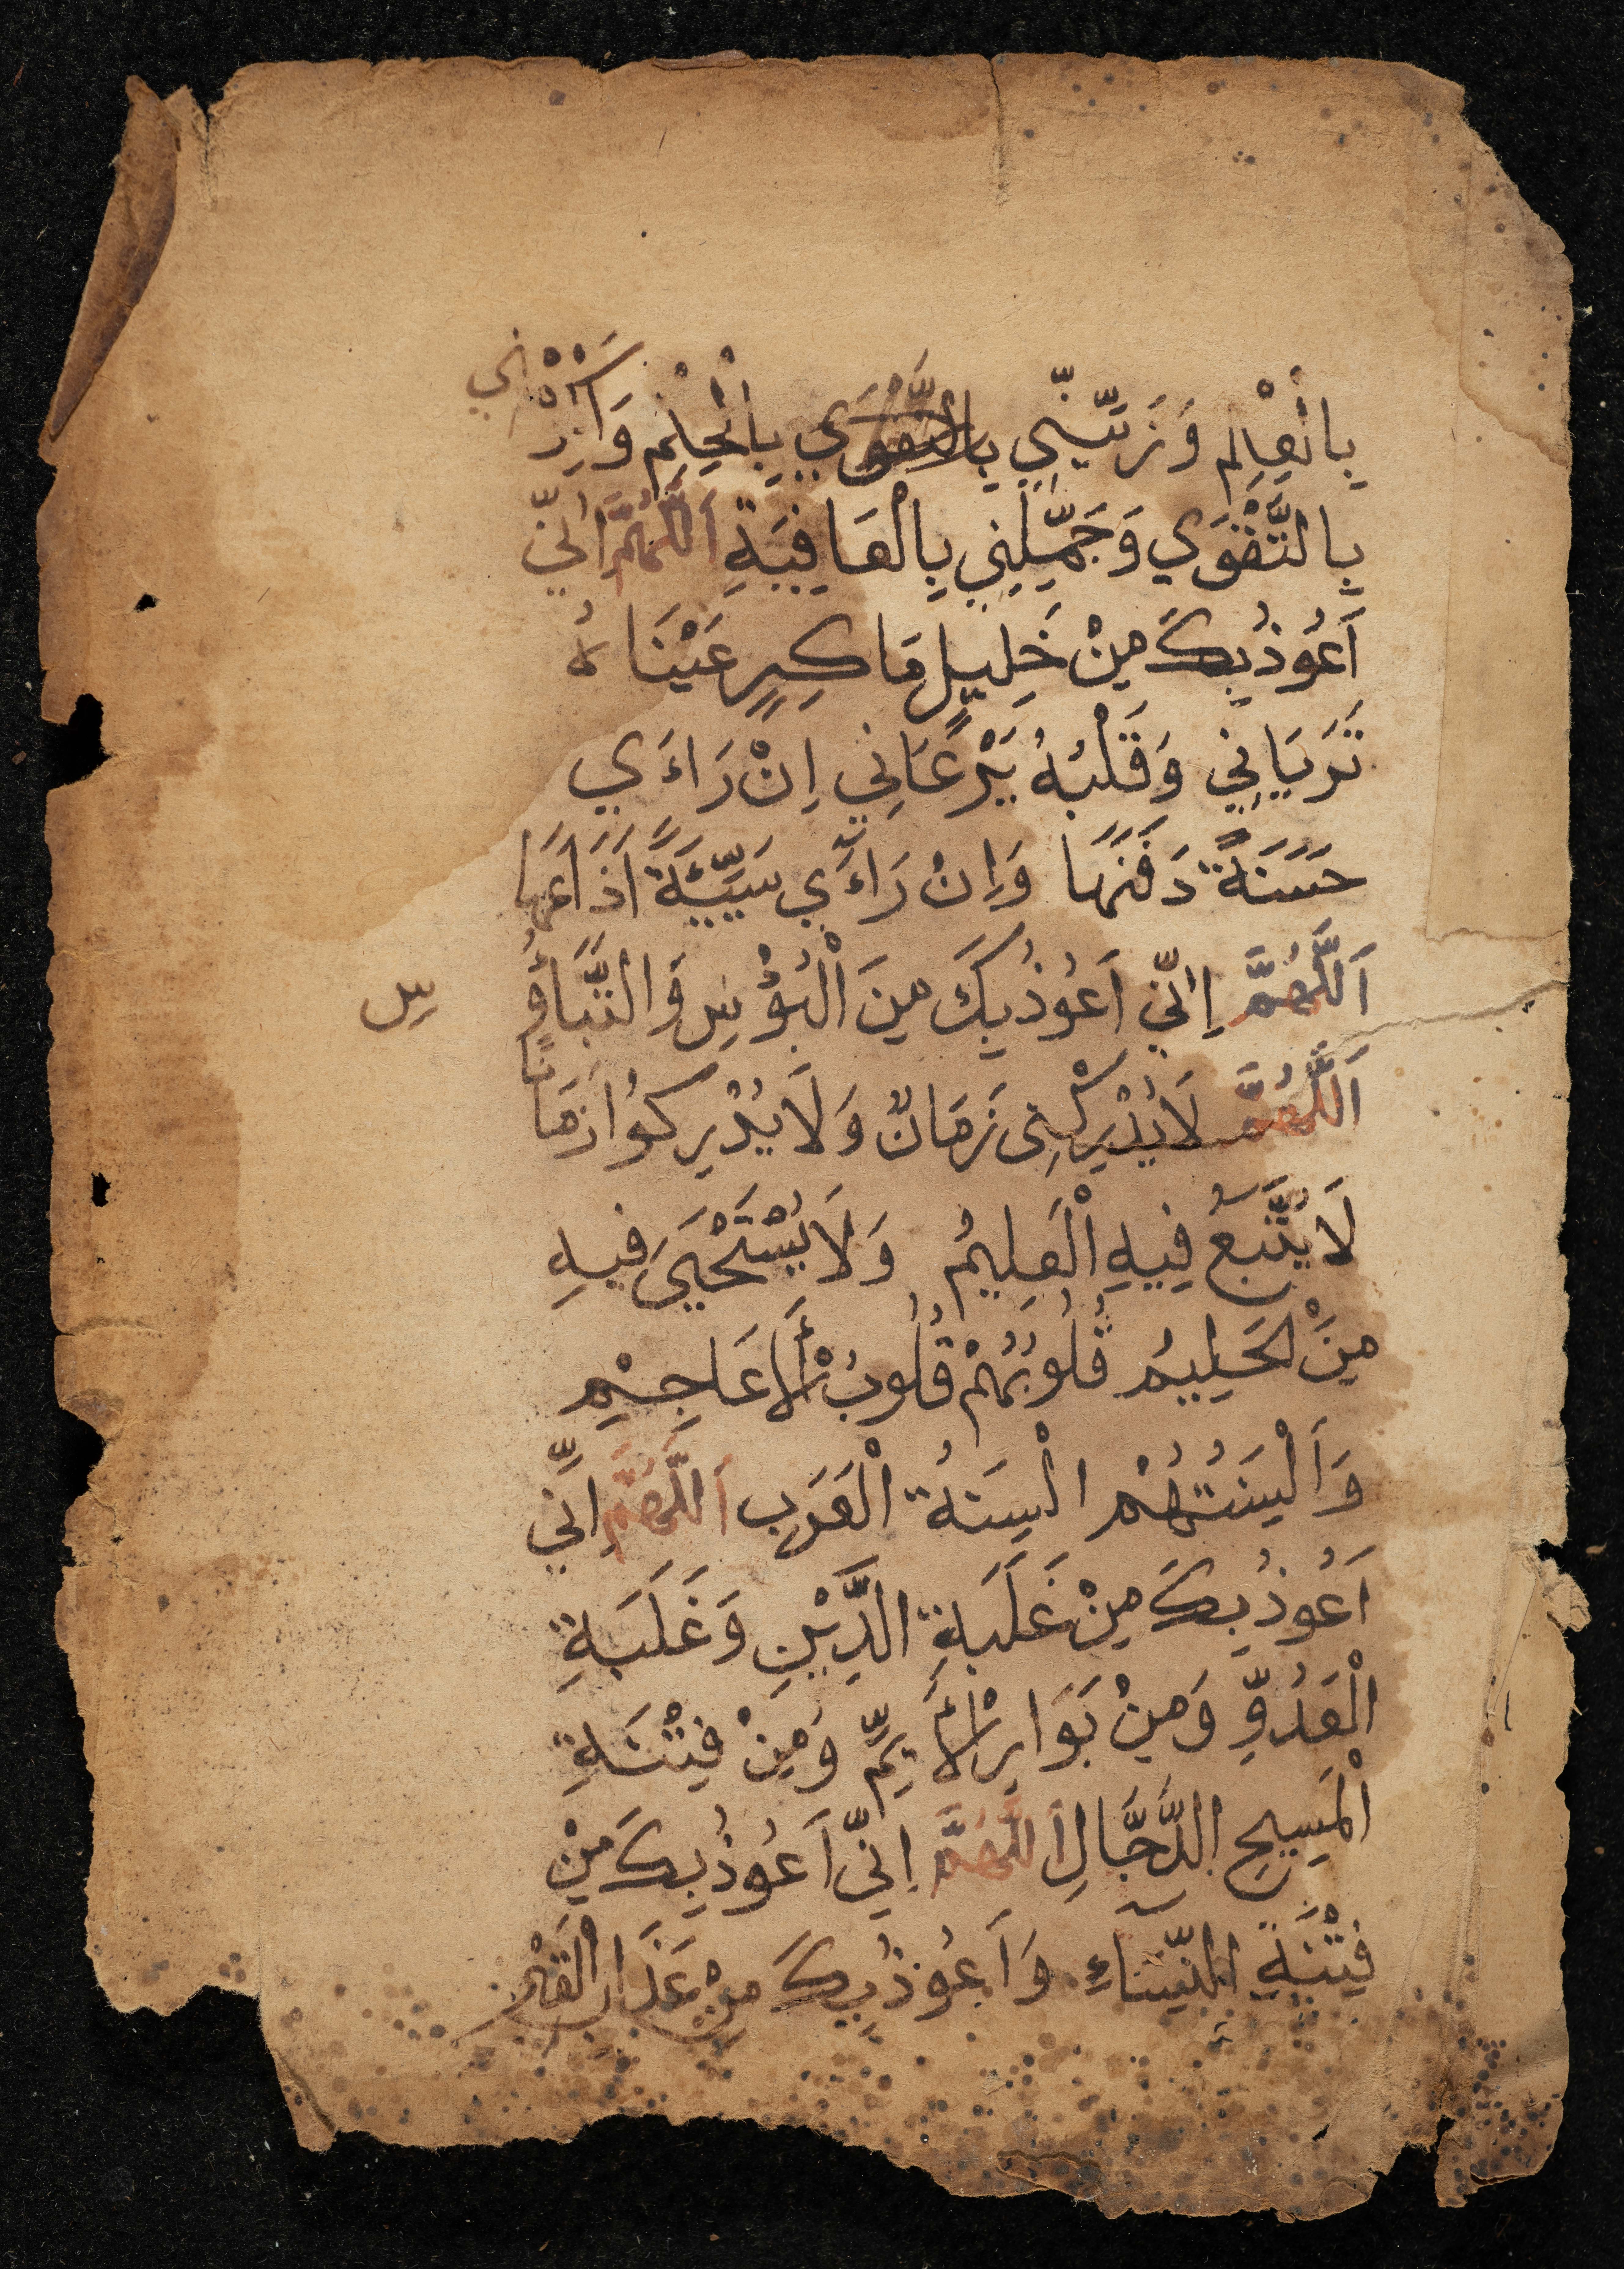 بِالْعِلْمِ وَزَيِّنِّي بِالتَّقْوَي بِالْحِلْمِ وَاكْرِمْنِي
بِالتَّقْوَي وَجَمِّلْنِي بِالْعَافِيَةِ اَللَّهُمَّ اِنِّي
اَعُوذُ بِكَ مِنْ خَلِيلٍ مَاكِرٍ عَيْنَاهُ
تَرَيَانِي وَقَلْبُهُ يَرْعَانِي اِنْ رَاءَي
حَسَنَةً دَفَنَهَا وَاِنْ رَاءَي سَيِّئَةً اَذَاعَهَا
اَللَّهُمَّ اِنِّي اَعُوذُ بِكَ مِنَ الْبُؤْسِ وَالتَّبَاؤُ
سِ
اَللَّهُمَّ لَا يُدْرِكْنِى زَمَانٌ وَلَا يُدْرِكُوا زَمَانًا
لَا يُتَّبَعُ فِيهِ الْعَلِيمُ وَلَا يُسْتَحْيَىَ فِيهِ
مِنَ الْحَلِيمِ قُلُوبُهُمْ قُلُوبُ الْأَعَاجِيْمِ
وَاَلْسِنَتُهُمْ الْسِنَةُ الْعَرَبِ اَللَّهُمَّ اِنِّي
اَعُوذُ بِكَ مِنْ غَلَبَةِ الدَّيْنِ وَغَلَبَةِ
الْعَدُوِّ وَمِنْ بَوَارِ الْأَيِّمِ وَمِنْ فِتْنَةِ
الْمَسِيحِ الدَّجَّالِ اَللَّهُمَّ اِنِّي اَعُوذُ بِكَ مِنْ
فِتْنَةِ النِّسَآءِ وَاَعُوذُ بِكَ مِنْ عَذَابِ الْقَبْرِ